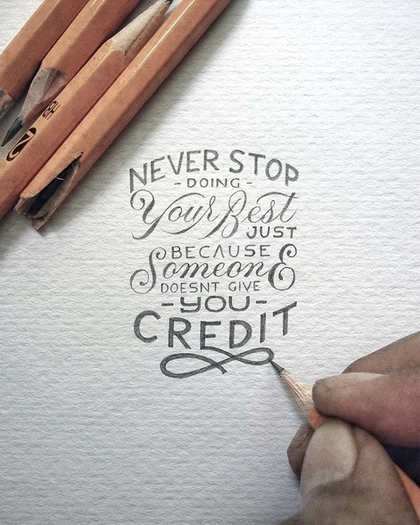 NEVER STOP
- DOING -
Your Best
JUST
BECAUSE
SomeonE
DOESNT GIVE
- YOU -
CREDIT